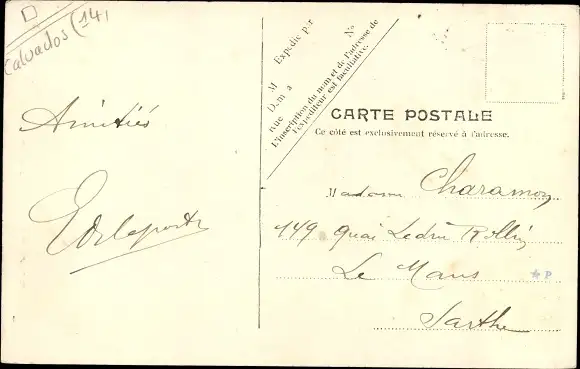 Calvados (14)
Amitiés
Expédié par
M
Dem. à
rue
No
L'inscription du nom et de l'adresse de
l'expéditeur est facultative.
CARTE POSTALE
Ce côté est exclusivement réservé à l'adresse.
Madame Charamon
149 Quai Ledru Rollin
Le Mans
P
Sarthe